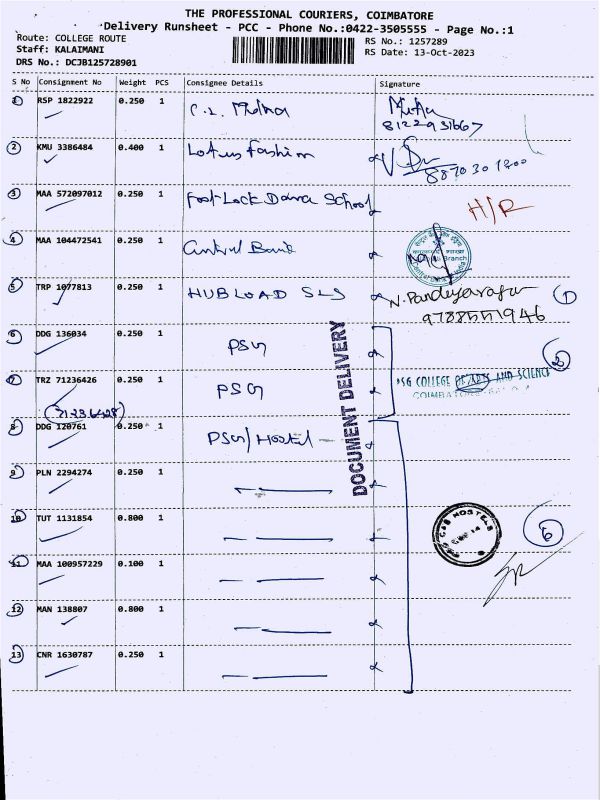 THE PROFESSIONAL COURIERS, COIMBATORE
Delivery Runsheet - PCC - Phone No.:0422-3505555 - Page No.:1
Route: COLLEGE ROUTE
Staff: KALAIMANI
DRS No.: DCJB125728901
RS No.: 1257289
RS Date: 13-Oct-2023
S No Consignment No Weight PCS Consignee Details Signature
1 RSP 1822922 0.250 1
8122931667
2 KMU 3386484 0.400 1 Lotus fashion
3 MAA 572097012 0.250 1 Foot-Lock Dance School H/R
4 MAA 104472541 0.250 1 Central Bank
5 TRP 1077813 0.250 1 HUBLOAD SLS N. Pandiyarajan 1
9788551946
6 DDG 136034 0.250 1 PSG 2
7 TRZ 71236426 0.250 1 PSG PSG COLLEGE OF ARTS AND SCIENCE
COIMBATORE
(71236428)
8 DDG 120761 0.250 1 PSG/Hostel
DOCUMENT DELIVERY
9 PLN 2294274 0.250 1
10 TUT 1131854 0.800 1 6
PSG CAS HOSTELS
11 MAA 100957229 0.100 1
12 MAN 138807 0.800 1
13 CNR 1630787 0.250 1